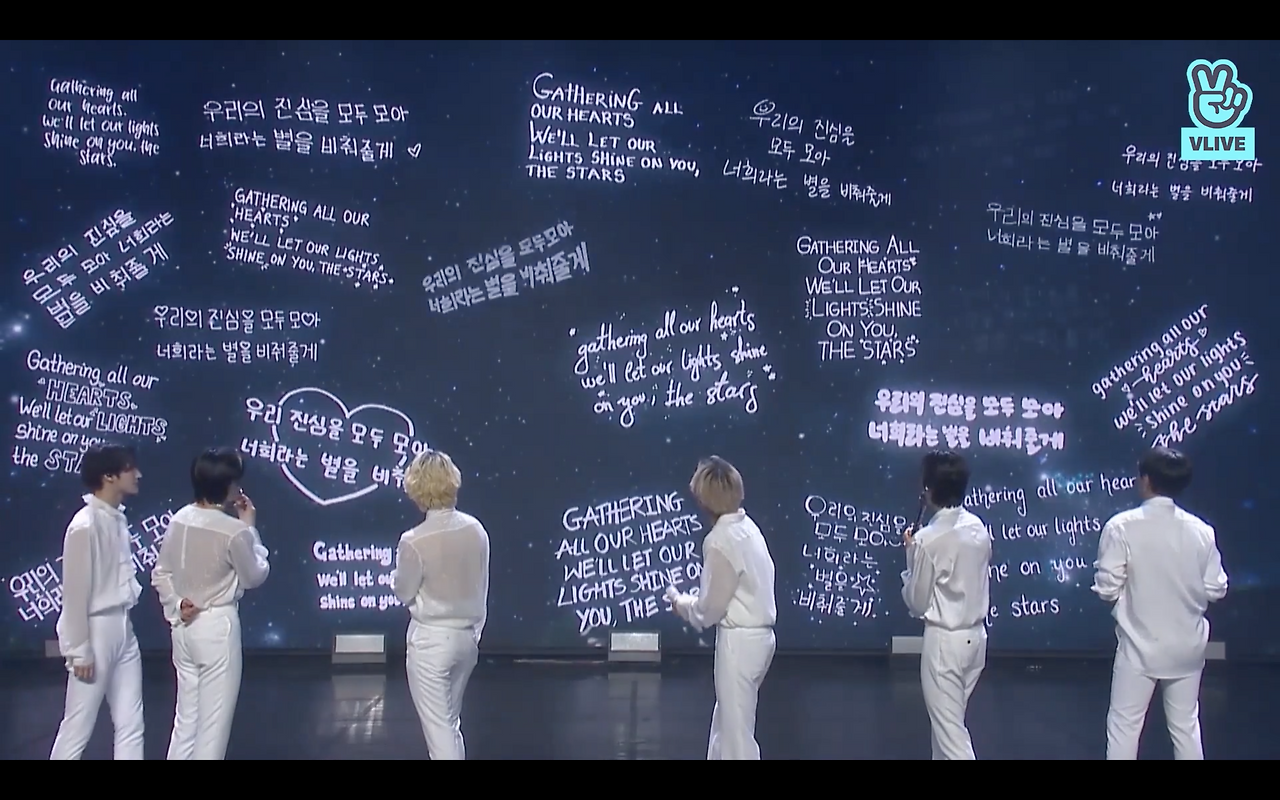 Gathering all
our hearts.
we'll let our lights
shine on you, the
stars.
우리의 진심을 모두 모아
너희라는 별을 비춰줄게
GATHERING ALL
OUR HEARTS
WE'LL LET OUR
LIGHTS SHINE ON YOU,
THE STARS
우리의 진심을
모두 모아
너희라는 별을 비춰줄게
VLIVE
우리의 진심을 모두 모아
너희라는 별을 비춰줄게
우리의 진심을
모두 모아 너희라는
별을 비춰줄게
GATHERING ALL OUR
HEARTS
WE'LL LET OUR LIGHTS
SHINE ON YOU, THE STARS
우리의 진심을 모두 모아
너희라는 별을 비춰줄게
GATHERING ALL
OUR HEARTS
WE'LL LET OUR
LIGHTS SHINE
ON YOU,
THE STARS
우리의 진심을 모두 모아
너희라는 별을 비춰줄게
우리의 진심을 모두 모아
너희라는 별을 비춰줄게
gathering all our hearts
we'll let our lights shine
on you, the stars
gathering all our
hearts
we'll let our lights
shine on you
the stars
Gathering all our
HEARTS.
We'll let our LIGHTS
shine on you
the
우리 진심을 모두 모아
너희라는 별을
우리의 진심을 모두 모아
너희라는 별을 비춰줄게
GATHERING
ALL OUR HEARTS
WE'LL LET OUR
LIGHTS SHINE ON
YOU, THE
진심을
모두 모아
너희라는
별을
비춰줄게.
all our
let our lights
on you
stars
Gathering
We'll let
shine on